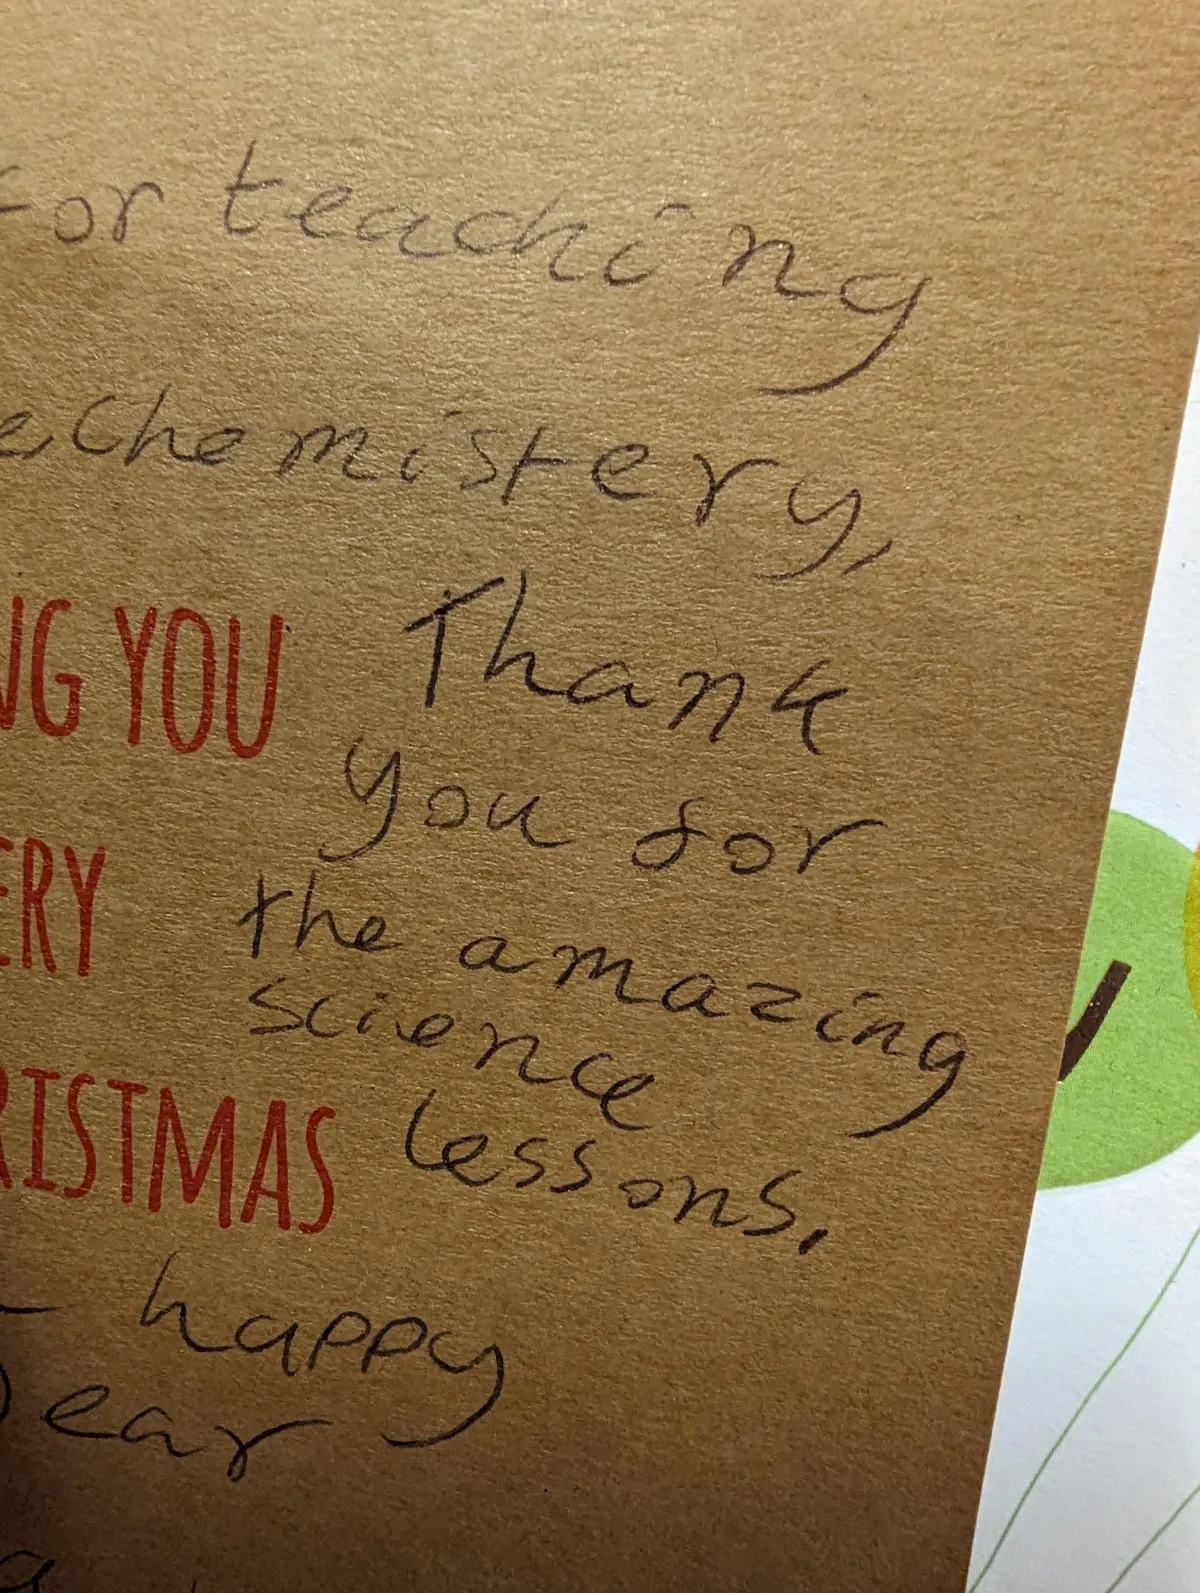 for teaching
e, chemistery,
NG YOU
Thank
you for
ERY
the amazing
science
RISTMAS
lessons.
happy
ear